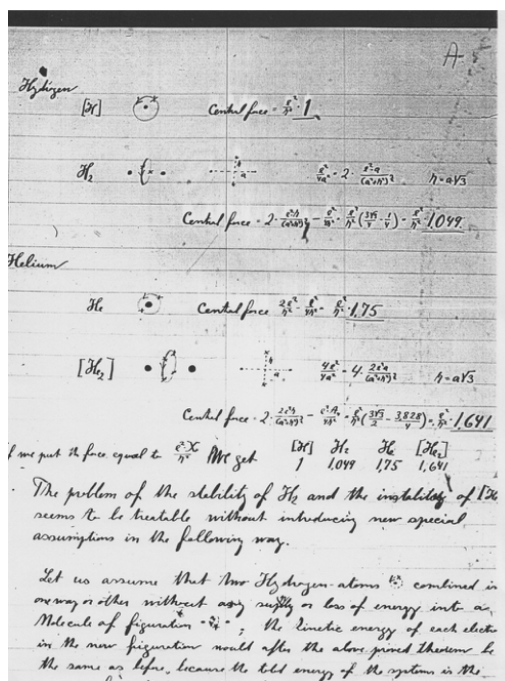 A-5
Hydrogen
[H] Central force = e²/r² · 1
H₂ e²/4a² = 2 · e²a/(a²+r²)^(3/2) r = a√3
Central force = 2 · e²r/(a²+r²)^(3/2) - e²/4r² = e²/r² (3√3/4 - 1/4) = e²/r² · 1,049
Helium
He Central force 2e²/r² - e²/4r² = e²/r² · 1,75
[He₂] 4e²/4a² = 4 · 2e²a/(a²+r²)^(3/2) r = a√3
Central force = 2 · = e²/r² (3√3/2 - 3,828/4) = e²/r² · 1,641
If we put the force equal to e²X/r² We get [H] H₂ He [He₂]
1 1,049 1,75 1,641
The problem of the stability of H₂ and the instability of [He
seems to be treatable without introducing new special
assumptions in the following way.
Let us assume that two Hydrogen-atoms combined in
one way or other without any supply or loss of energy into a
Molecule of figuration ; the kinetic energy of each electr
in the new figuration would after the above proved theorem be
the same as before, because the total energy of the systems is the